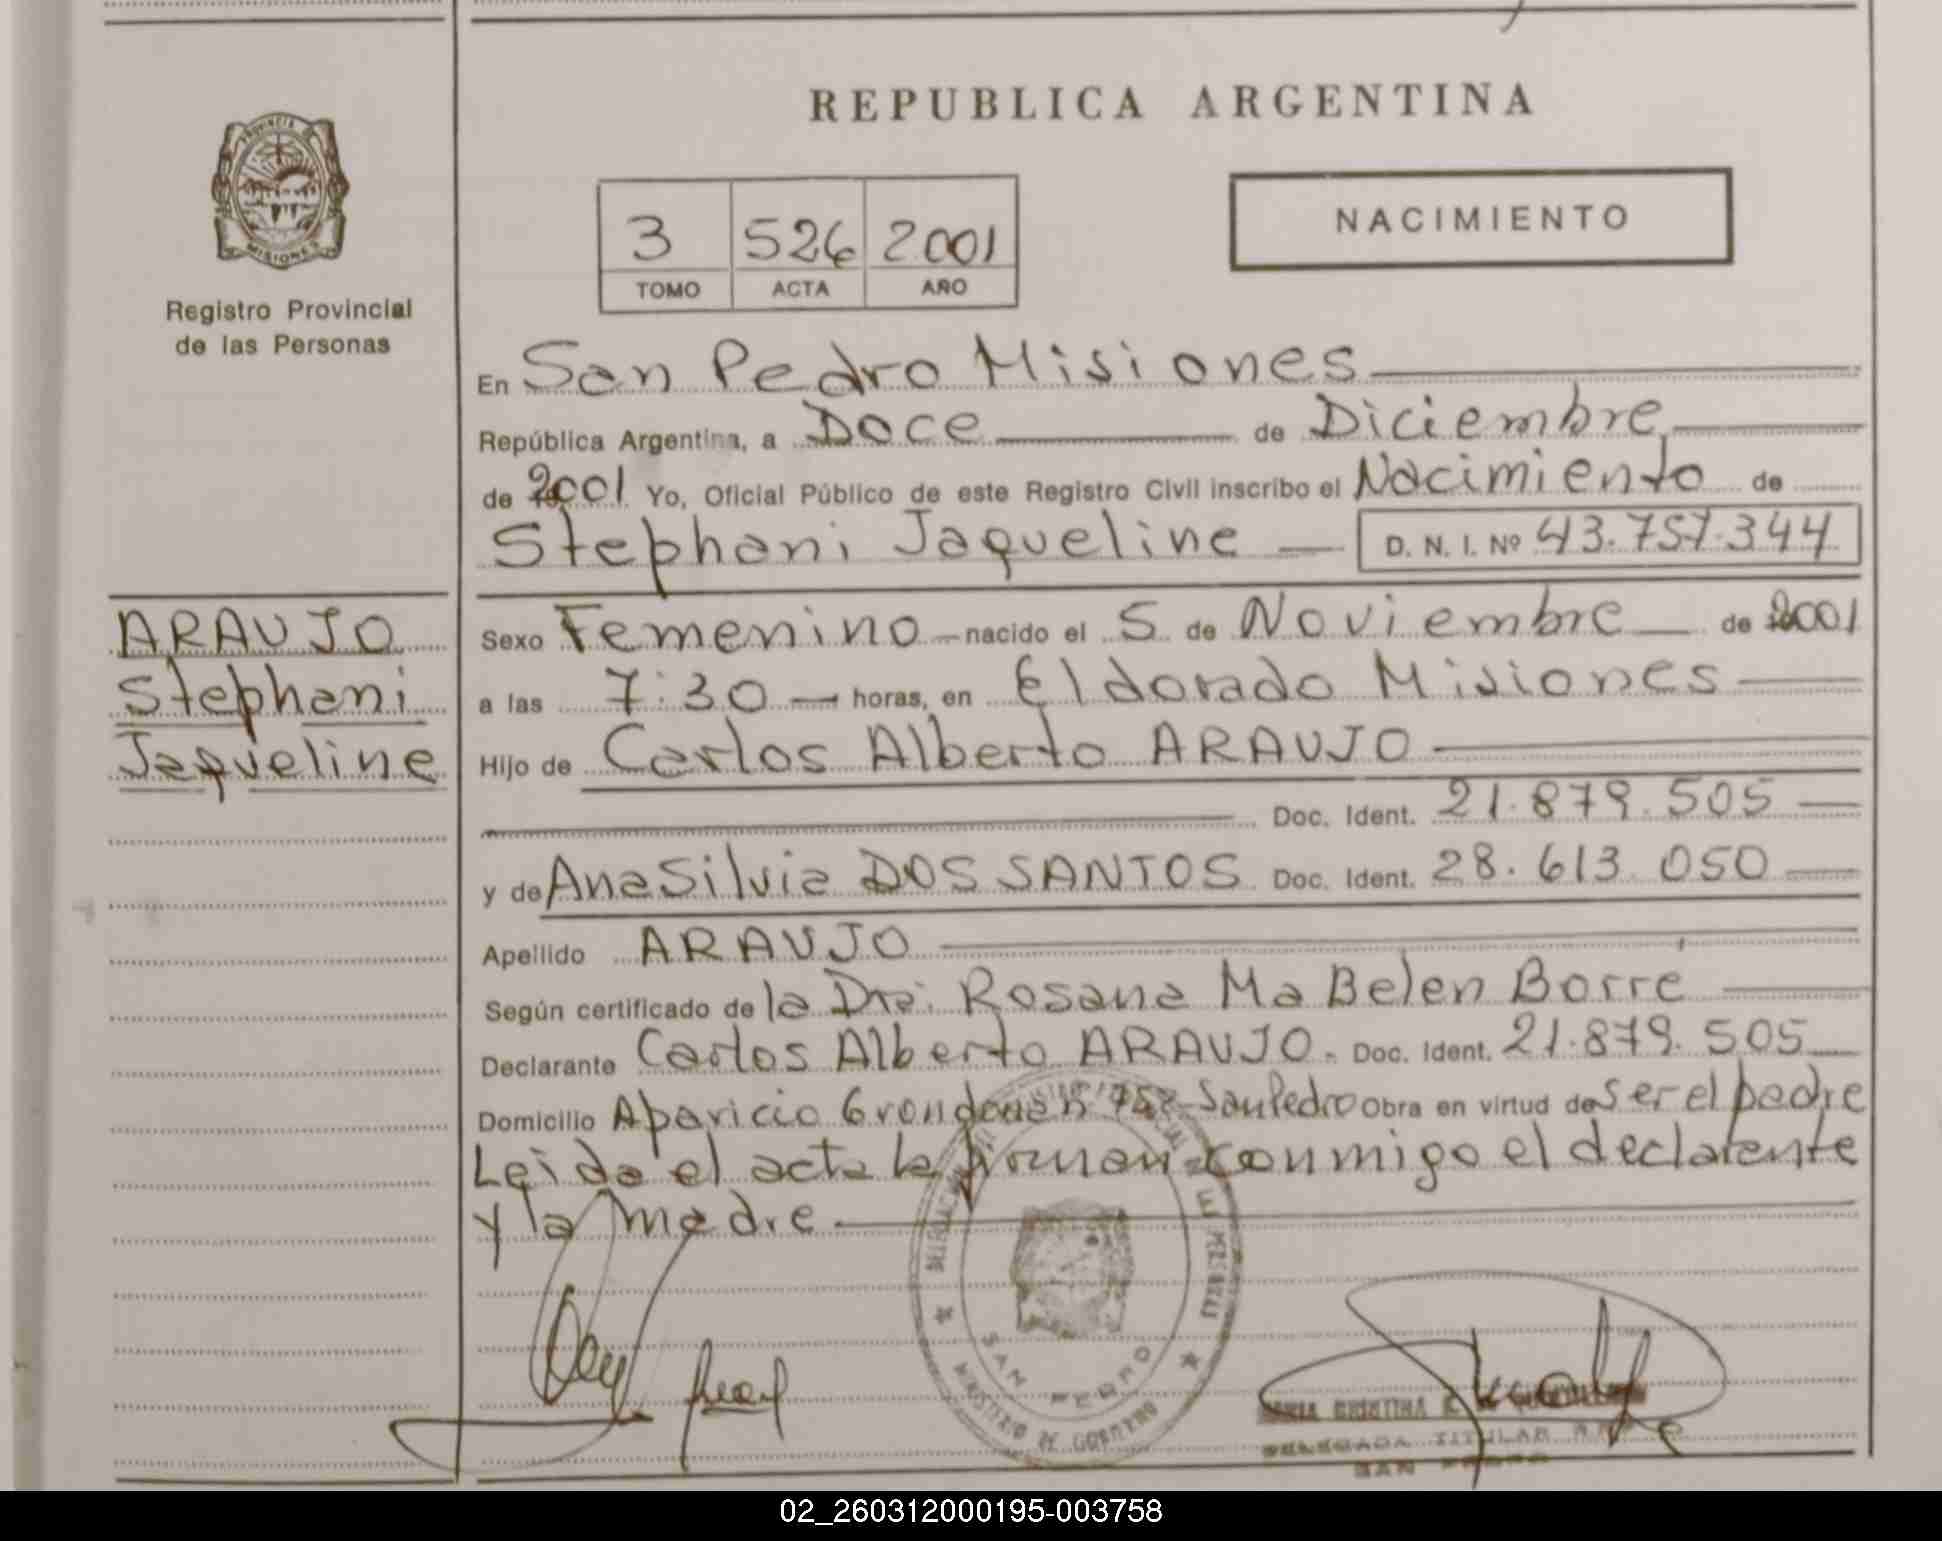 REPUBLICA ARGENTINA
PROVINCIA DE
MISIONES
Registro Provincial
de las Personas
3 526 2001
TOMO ACTA AÑO
NACIMIENTO
En San Pedro Misiones
República Argentina, a Doce de Diciembre
de 2001 Yo, Oficial Público de este Registro Civil inscribo el Nacimiento de
Stephani Jaqueline D. N. I. Nº 43.757.344
ARAUJO
Stephani
Jaqueline
Sexo Femenino nacido el 5 de Noviembre de 2001
a las 7:30 horas, en Eldorado Misiones
Hijo de Carlos Alberto ARAUJO
Doc. Ident. 21.879.505
y de Ana Silvia DOS SANTOS Doc. Ident. 28.613.050
Apellido ARAUJO
Según certificado de la Dra. Rosana Ma Belen Borré
Declarante Carlos Alberto ARAUJO. Doc. Ident. 21.879.505
Domicilio Aparicio San Pedro Obra en virtud de ser el padre
Leida el acta la firman conmigo el declarante
y la madre
SAN PEDRO
MINISTERIO DE GOBIERNO
MARIA CRISTINA
DELEGADA TITULAR
SAN PEDRO
02_260312000195-003758